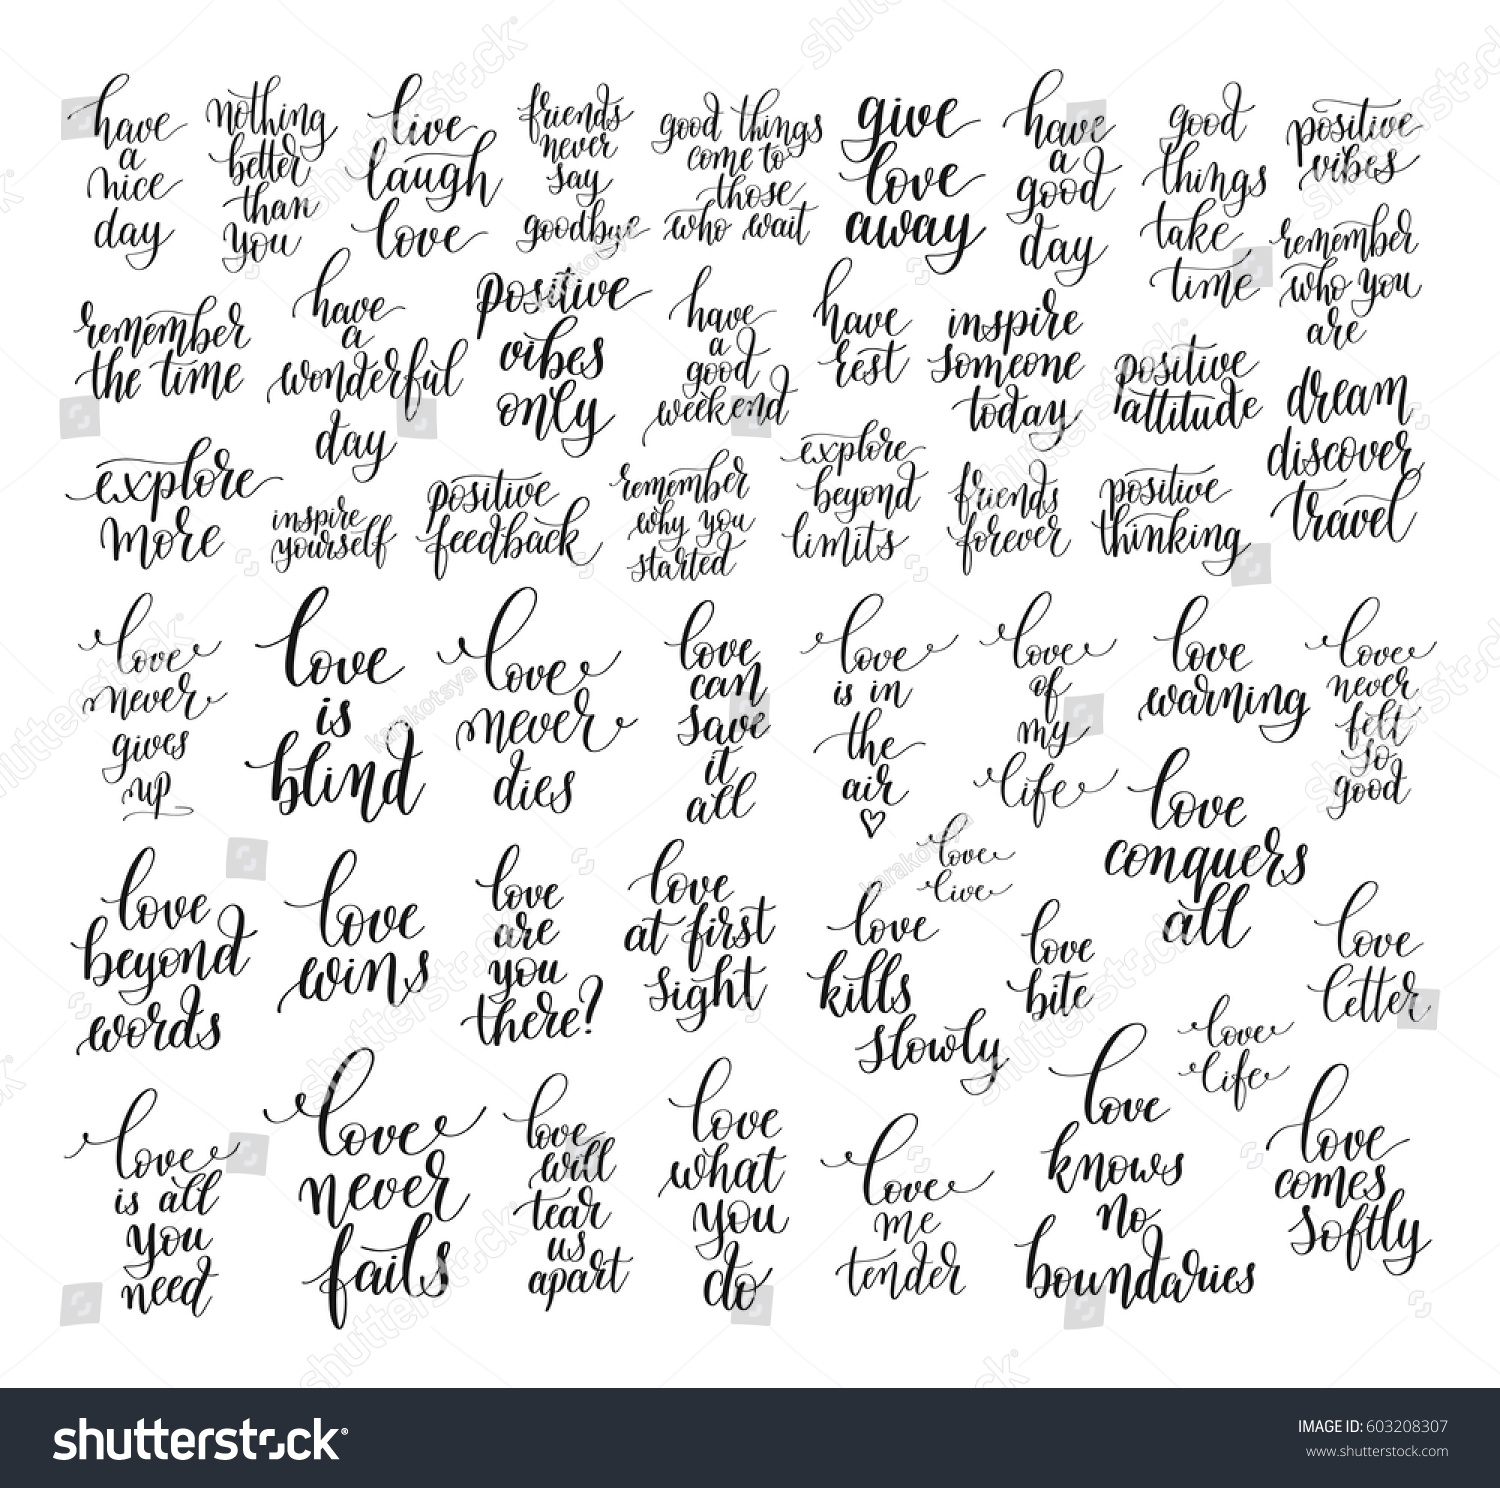 have
a
nice
day
nothing
better
than
you
live
laugh
love
friends
never
say
goodbye
good things
come to
those
who wait
give
love
away
have
a
good
day
good
things
take
time
positive
vibes
remember
who you
are
remember
the time
have
a
wonderful
day
positive
vibes
only
have
a
good
weekend
have
rest
inspire
someone
today
positive
attitude
dream
discover
travel
explore
more
inspire
yourself
positive
feedback
remember
why you
started
explore
beyond
limits
friends
forever
positive
thinking
love
never
gives
up
love
is
blind
love
never
dies
love
can
save
it
all
love
is in
the
air
love
of
my
life
love
warning
love
never
felt
so
good
love
conquers
all
love
live
love
beyond
words
love
wins
love
are
you
there?
love
at first
sight
love
kills
slowly
love
bite
love
letter
love
life
love
is all
you
need
love
never
fails
love
will
tear
us
apart
love
what
you
do
love
me
tender
love
knows
no
boundaries
love
comes
softly
shutterstock
karakotsya
shutterstock
IMAGE ID: 603208307
www.shutterstock.com